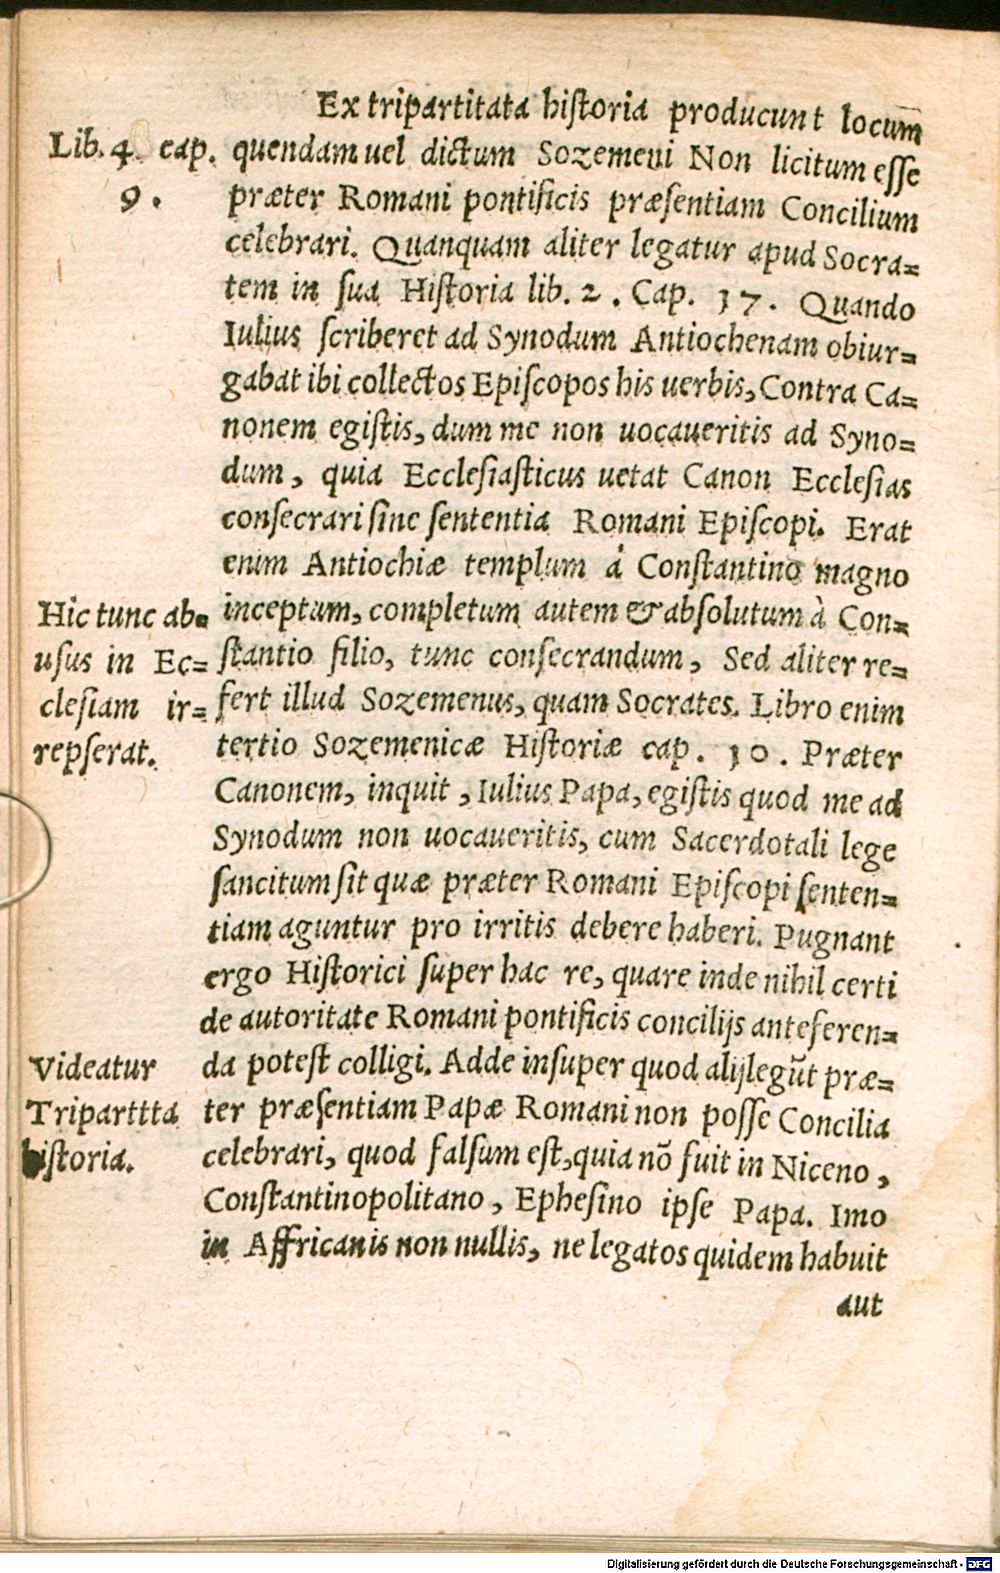 Ex tripartitata historia producunt locum̄
Lib. 4. cap.
9.
quendam uel dictum Sozemeni Non licitum esse
præter Romani pontificis præsentiam Concilium
celebrari. Quanquam aliter legatur apud Socra=
tem in sua Historia lib. 2. Cap. 17. Quando
Iulius scriberet ad Synodum Antiochenam obiur=
gabat ibi collectos Episcopos his uerbis, Contra Ca=
nonem egistis, dum me non uocaueritis ad Syno=
dum, quia Ecclesiasticus uetat Canon Ecclesias
consecrari sine sententia Romani Episcopi. Erat
enim Antiochiæ templum à Constantino magno
inceptum, completum autem & absolutum à Con=
stantio filio, tunc consecrandum, Sed aliter re=
fert illud Sozemenus, quam Socrates. Libro enim
tertio Sozemenicæ Historiæ cap. 10. Præter
Hic tunc ab=
usus in Ec=
clesiam ir=
repserat.
Canonem, inquit, Iulius Papa, egistis quod me ad
Synodum non uocaueritis, cum Sacerdotali lege
sancitum sit quæ præter Romani Episcopi senten=
tiam aguntur pro irritis debere haberi. Pugnant
ergo Historici super hac re, quare inde nihil certi
de autoritate Romani pontificis concilijs anteferen=
da potest colligi. Adde insuper quod alij legūt præ=
ter præsentiam Papæ Romani non posse Concilia
celebrari, quod falsum est, quia nō fuit in Niceno,
Videatur
Triparttta
historia.
Constantinopolitano, Ephesino ipse Papa. Imo
in Affricanis non nullis, ne legatos quidem habuit
aut
Digitalisierung gefördert durch die Deutsche Forschungsgemeinschaft - DFG